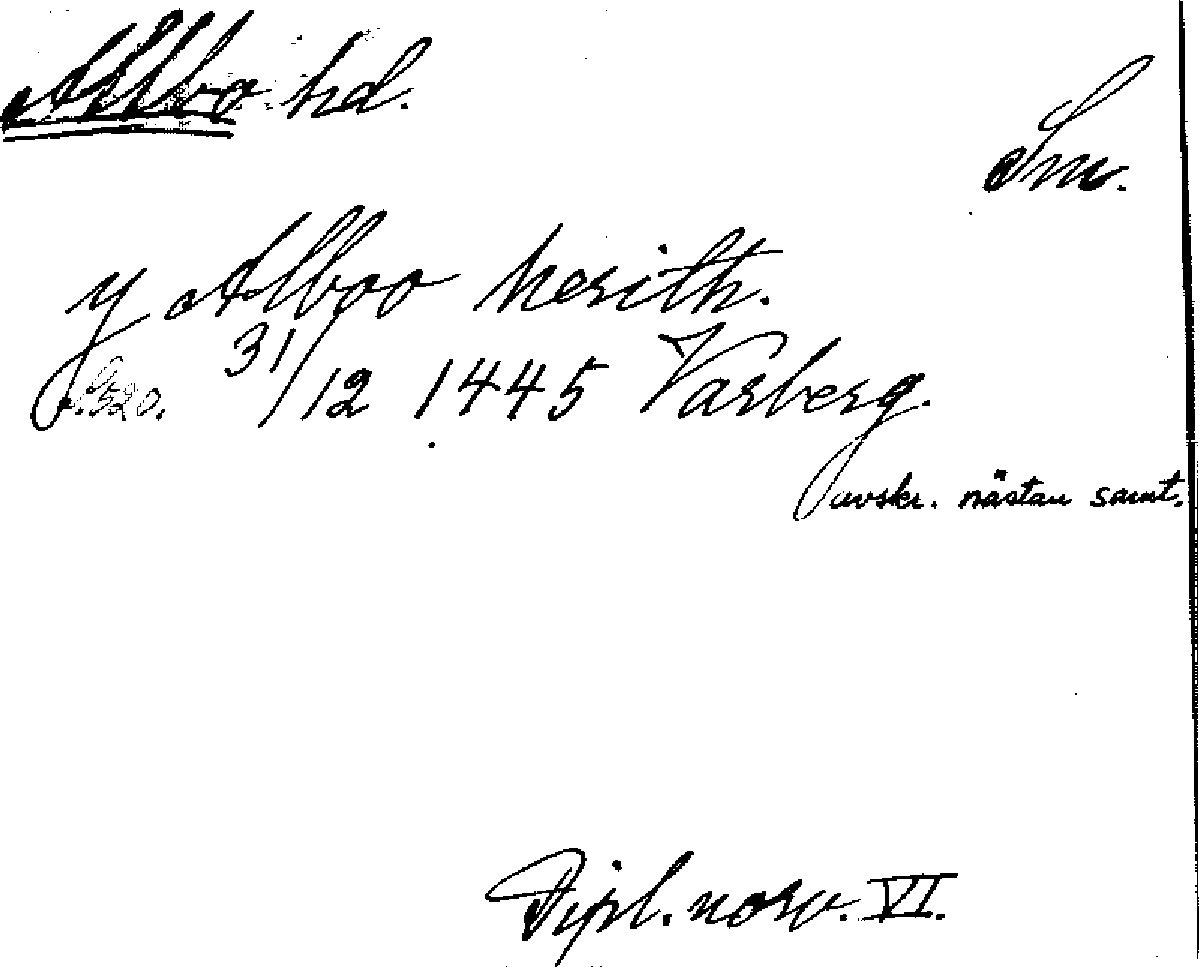 Allbo hd.
Sm.
y Alboo herith.
s. 520. 31/12 1445 Varberg.
avskr. nästan samt.
Dipl. norv. VI.